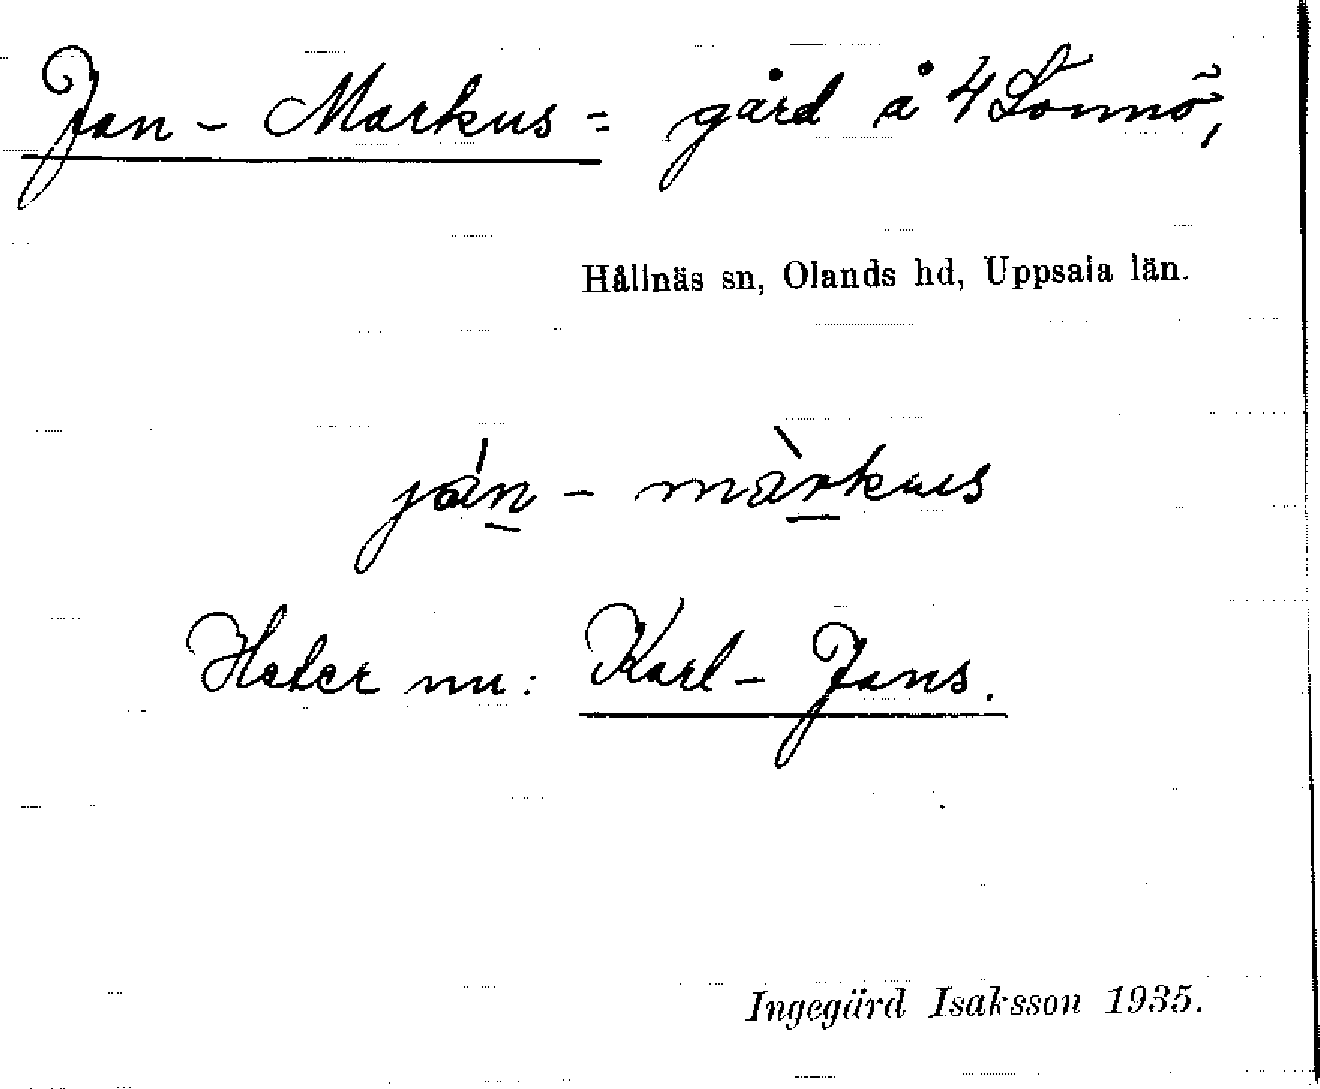 Jan-Markus= gård å 4 Lonnö,
Hållnäs sn, Olands hd, Uppsala län.
ján-màrkus
Heter nu: Karl-Jans.
Ingegärd Isaksson 1935.